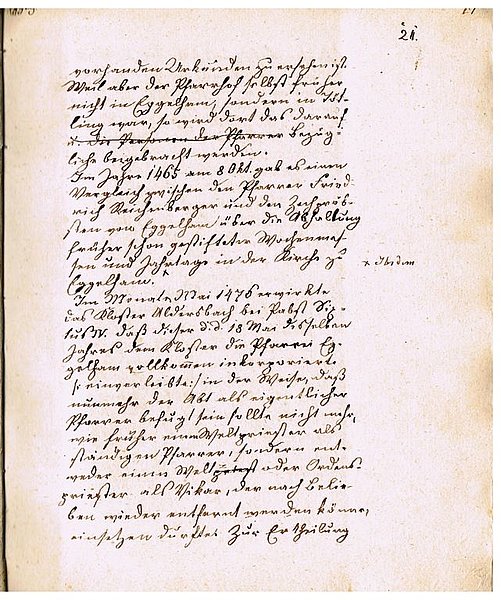 21.
vorhanden Urkunden zu ersehen ist.
Weil aber der Pfarrhof selbst früher
nicht in Eggelham, sondern in
ling war, so wird dort das darauf
u. die Personen der Pfarrer bezüg=
liche beigebracht werden.
Im Jahre 1465 am 8 Okt. gab es einen
Vergleich zwischen dem Pfarrer Fried=
rich Reichenberger und den Zechpröb=
sten von Eggelham über die Abhaltung
früher schon gestifteter Wochenmes=
sen und Jahrtage in der Kirche zu
Eggelham. x
x Ibidem
Im Monate Mai 1476 erwirkte
das Kloster Aldersbach bei Pabst Six=
tus IV. daß dieser d.d. 13 Mai desselben
Jahres dem Kloster die Pfarrei Eg=
gelham vollkommen inkorporierte
/: einverleibte :/ in der Weise, daß
nunmehr der Abt als eigentlicher
Pfarrer befugt sein sollte nicht mehr,
wie früher einen Weltpriester als
ständigen Pfarrer, sondern ent=
weder einen Welt oder Ordens=
priester als Vikar, der nach Belie=
ben wieder entfernt werden könne,
einsetzen durfte. Zur Ertheilung